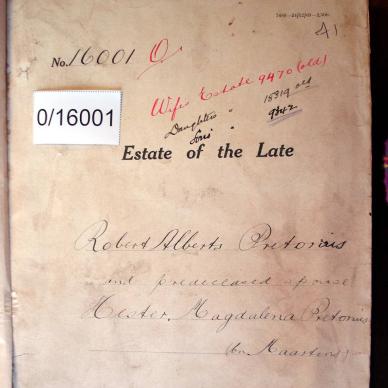 41
No. 16001 O
Wife's Estate 9470 (old)
Daughters " 18319 old
Son's " 9842
0/16001
Estate of the Late
Robert Alberts Pretorius
and predeceased spouse
Hester Magdalena Pretorius
(bn Maartens)